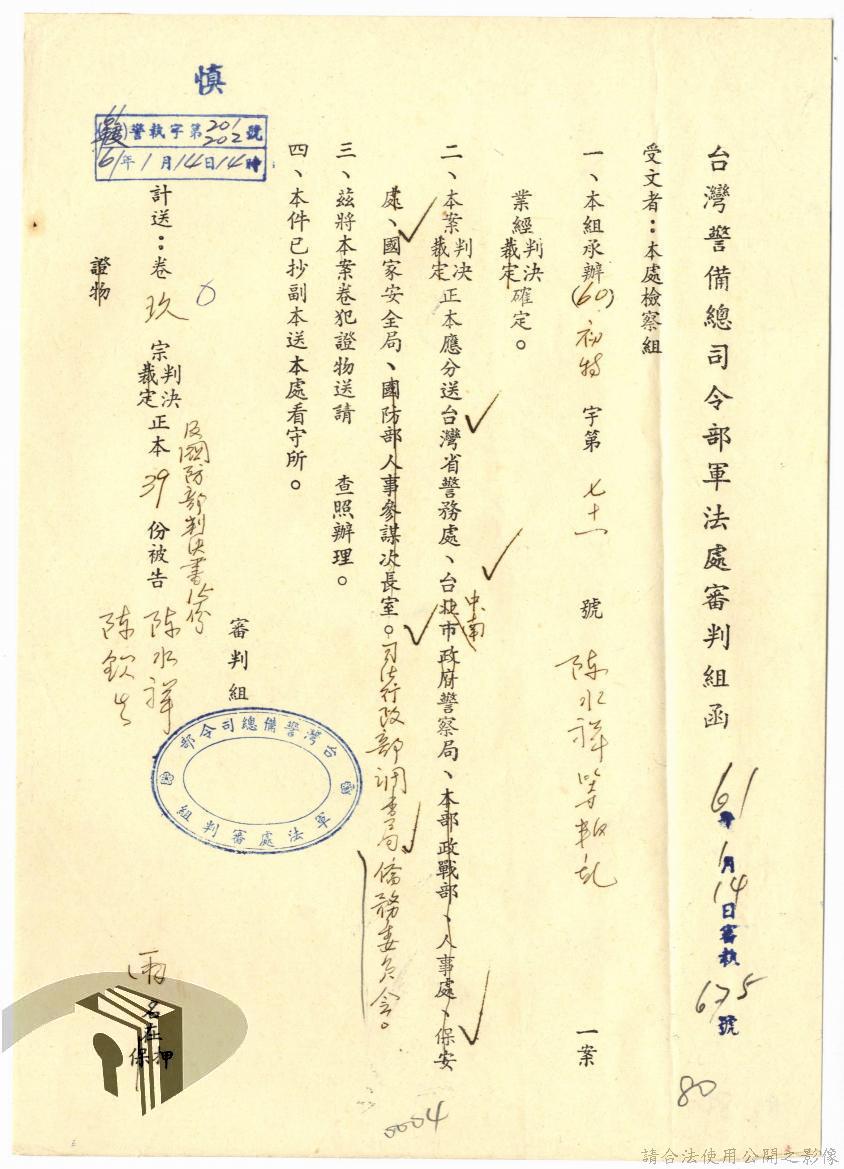 台灣警備總司令部軍法處審判組函
61年1月14日審執675號
受文者：本處檢察組
一、本組承辦(60)初特字第七十一號陳水祥等叛乱一案
業經判決裁定確定。
二、本案判決裁定正本應分送台灣省警務處、台北市政府警察局、本部政戰部、人事處、保安
中南
處、國家安全局、國防部人事參謀次長室。司法行政部調查局僑務委員会。
三、茲將本案卷犯證物送請　查照辦理。
四、本件已抄副本送本處看守所。
審判組
台灣警備總司令部
軍法處審判組
及國防部判決書 份
計送：卷玖宗判決裁定正本39份被告陳水祥
陳欽生
兩名在押保
證物 0
慎
警執字第201 202號
61年1月14日14時
80
0004
請合法使用公開之影像